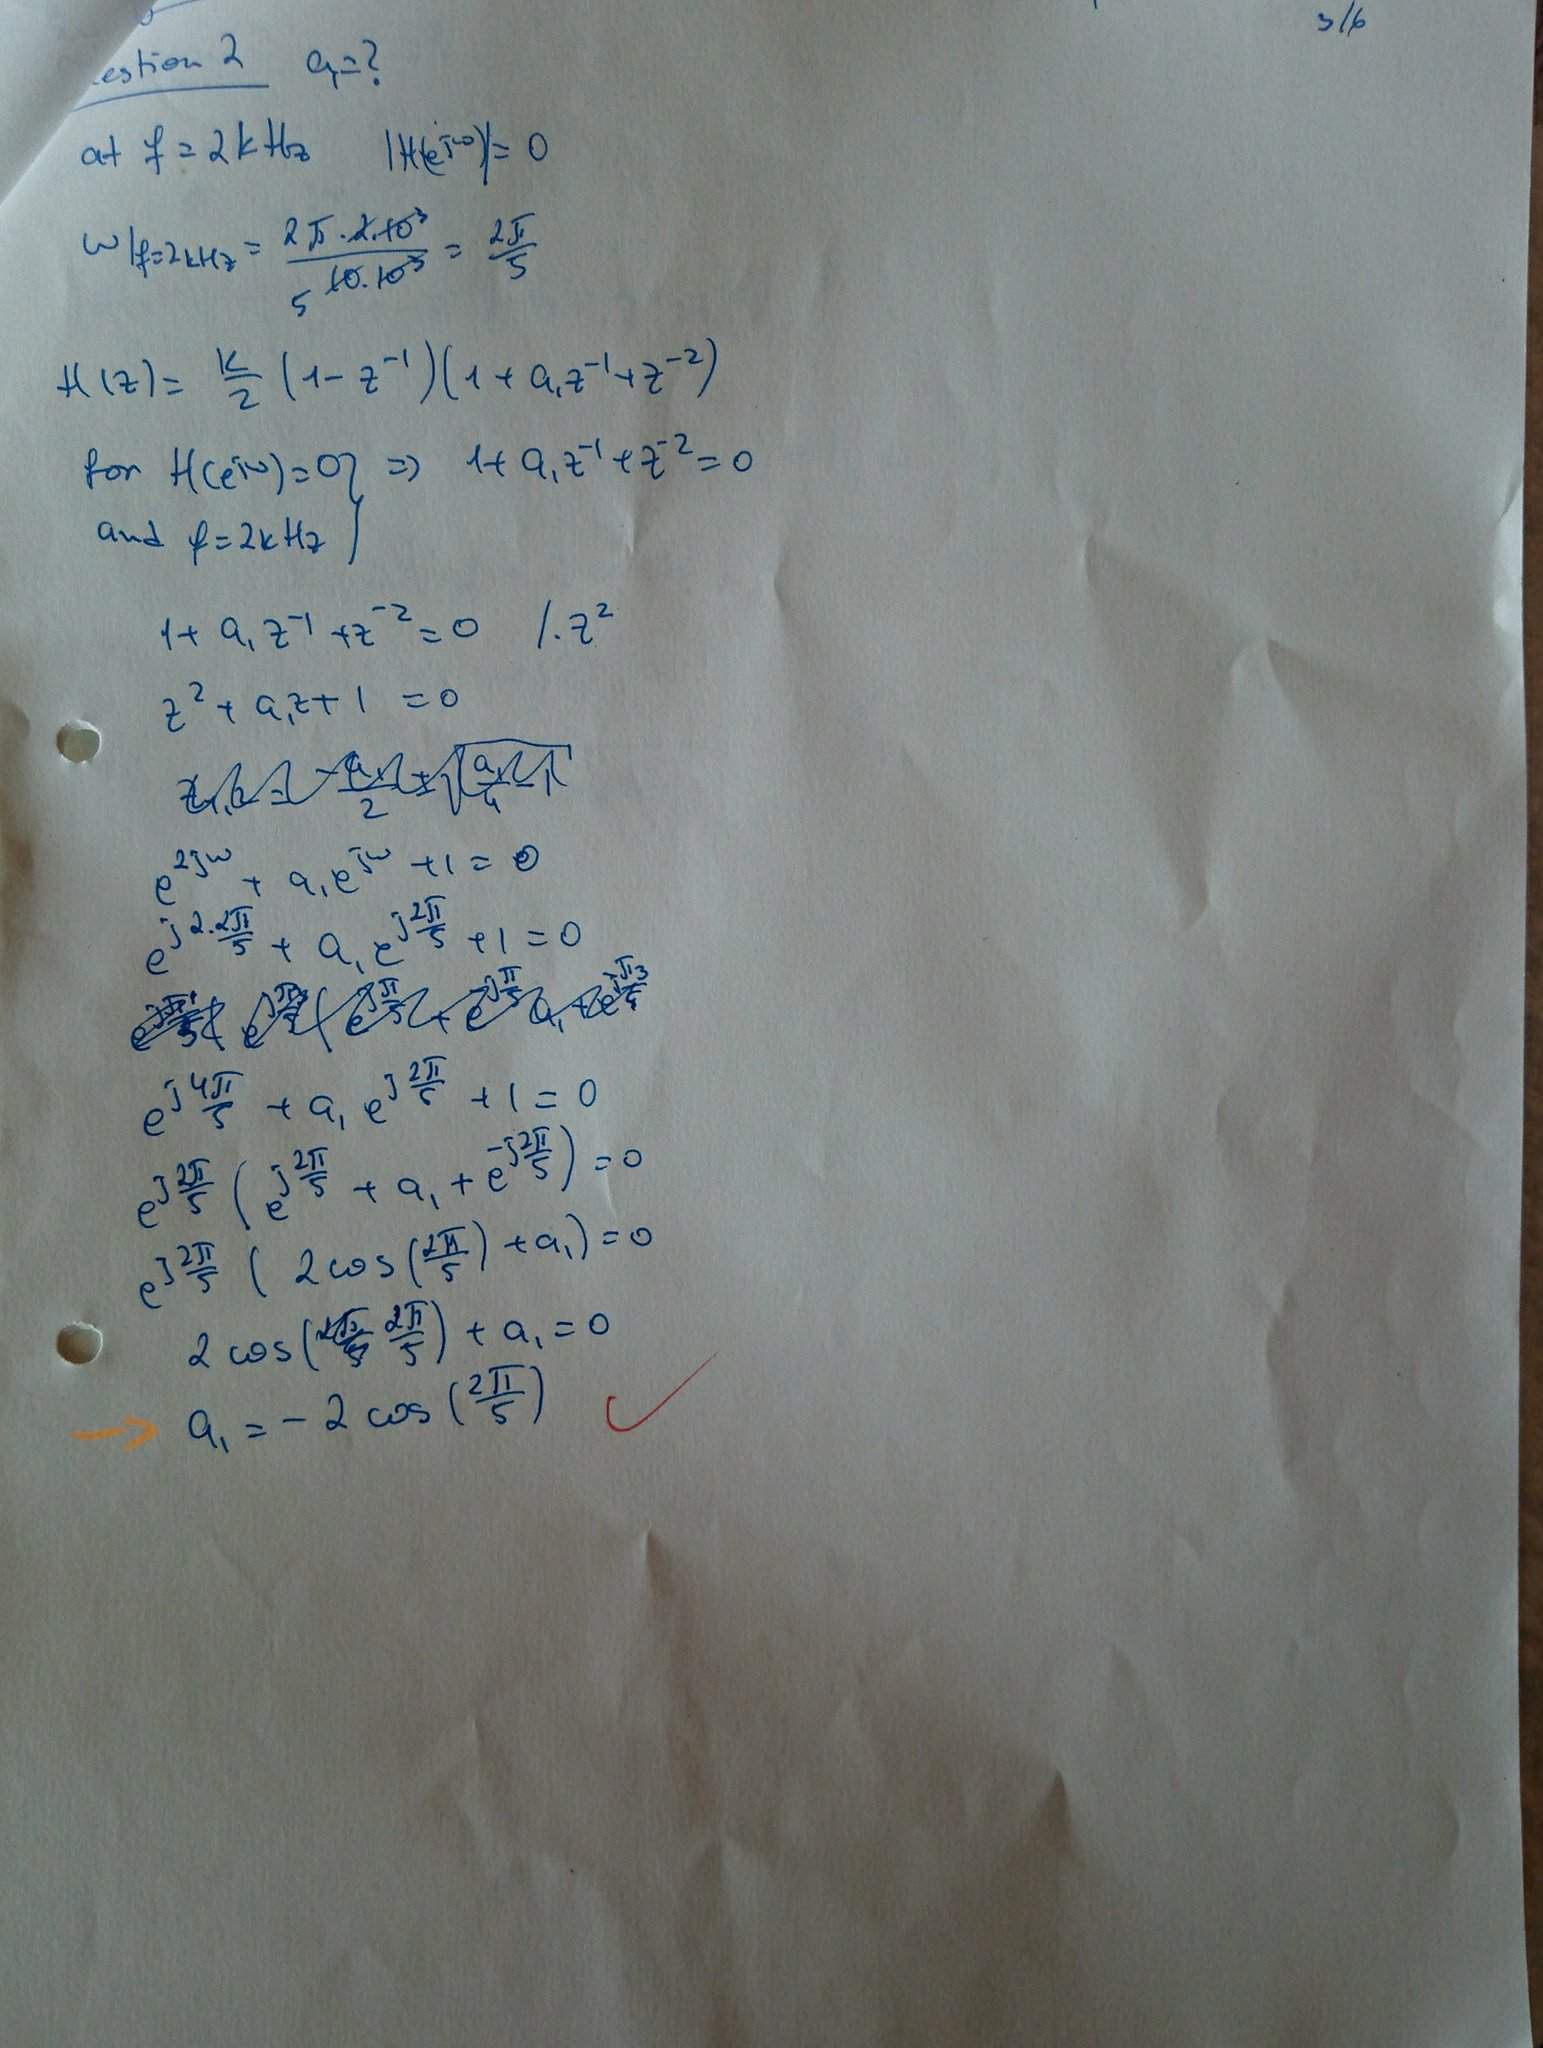 3/6
estion 2 a₁=?
at f=2kHz |H(e^jω)|=0
ω|f=2kHz = 2π·2·10³ / 5 10·10³ = 2π/5
H(z)= K/2 (1-z⁻¹)(1+a₁z⁻¹+z⁻²)
for H(e^jω)=0} ⇒ 1+a₁z⁻¹+z⁻²=0
and f=2kHz
1+a₁z⁻¹+z⁻²=0 /·z²
z²+a₁z+1 =0
e^2jω + a₁e^jω +1=0
e^j2·2π/5 + a₁e^j2π/5 +1=0
e^j4π/5 + a₁e^j2π/5 +1=0
e^j2π/5 (e^j2π/5 + a₁ + e^-j2π/5)=0
e^j2π/5 ( 2cos(2π/5) +a₁)=0
2cos(2π/5) + a₁=0
→ a₁=-2cos(2π/5) ✓